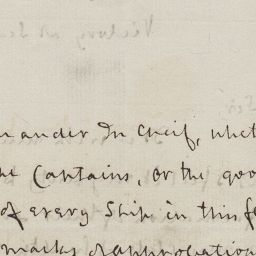 mander In Cheif, whet
he Captains, or the goo
of every Ship in this f
marks of approbation